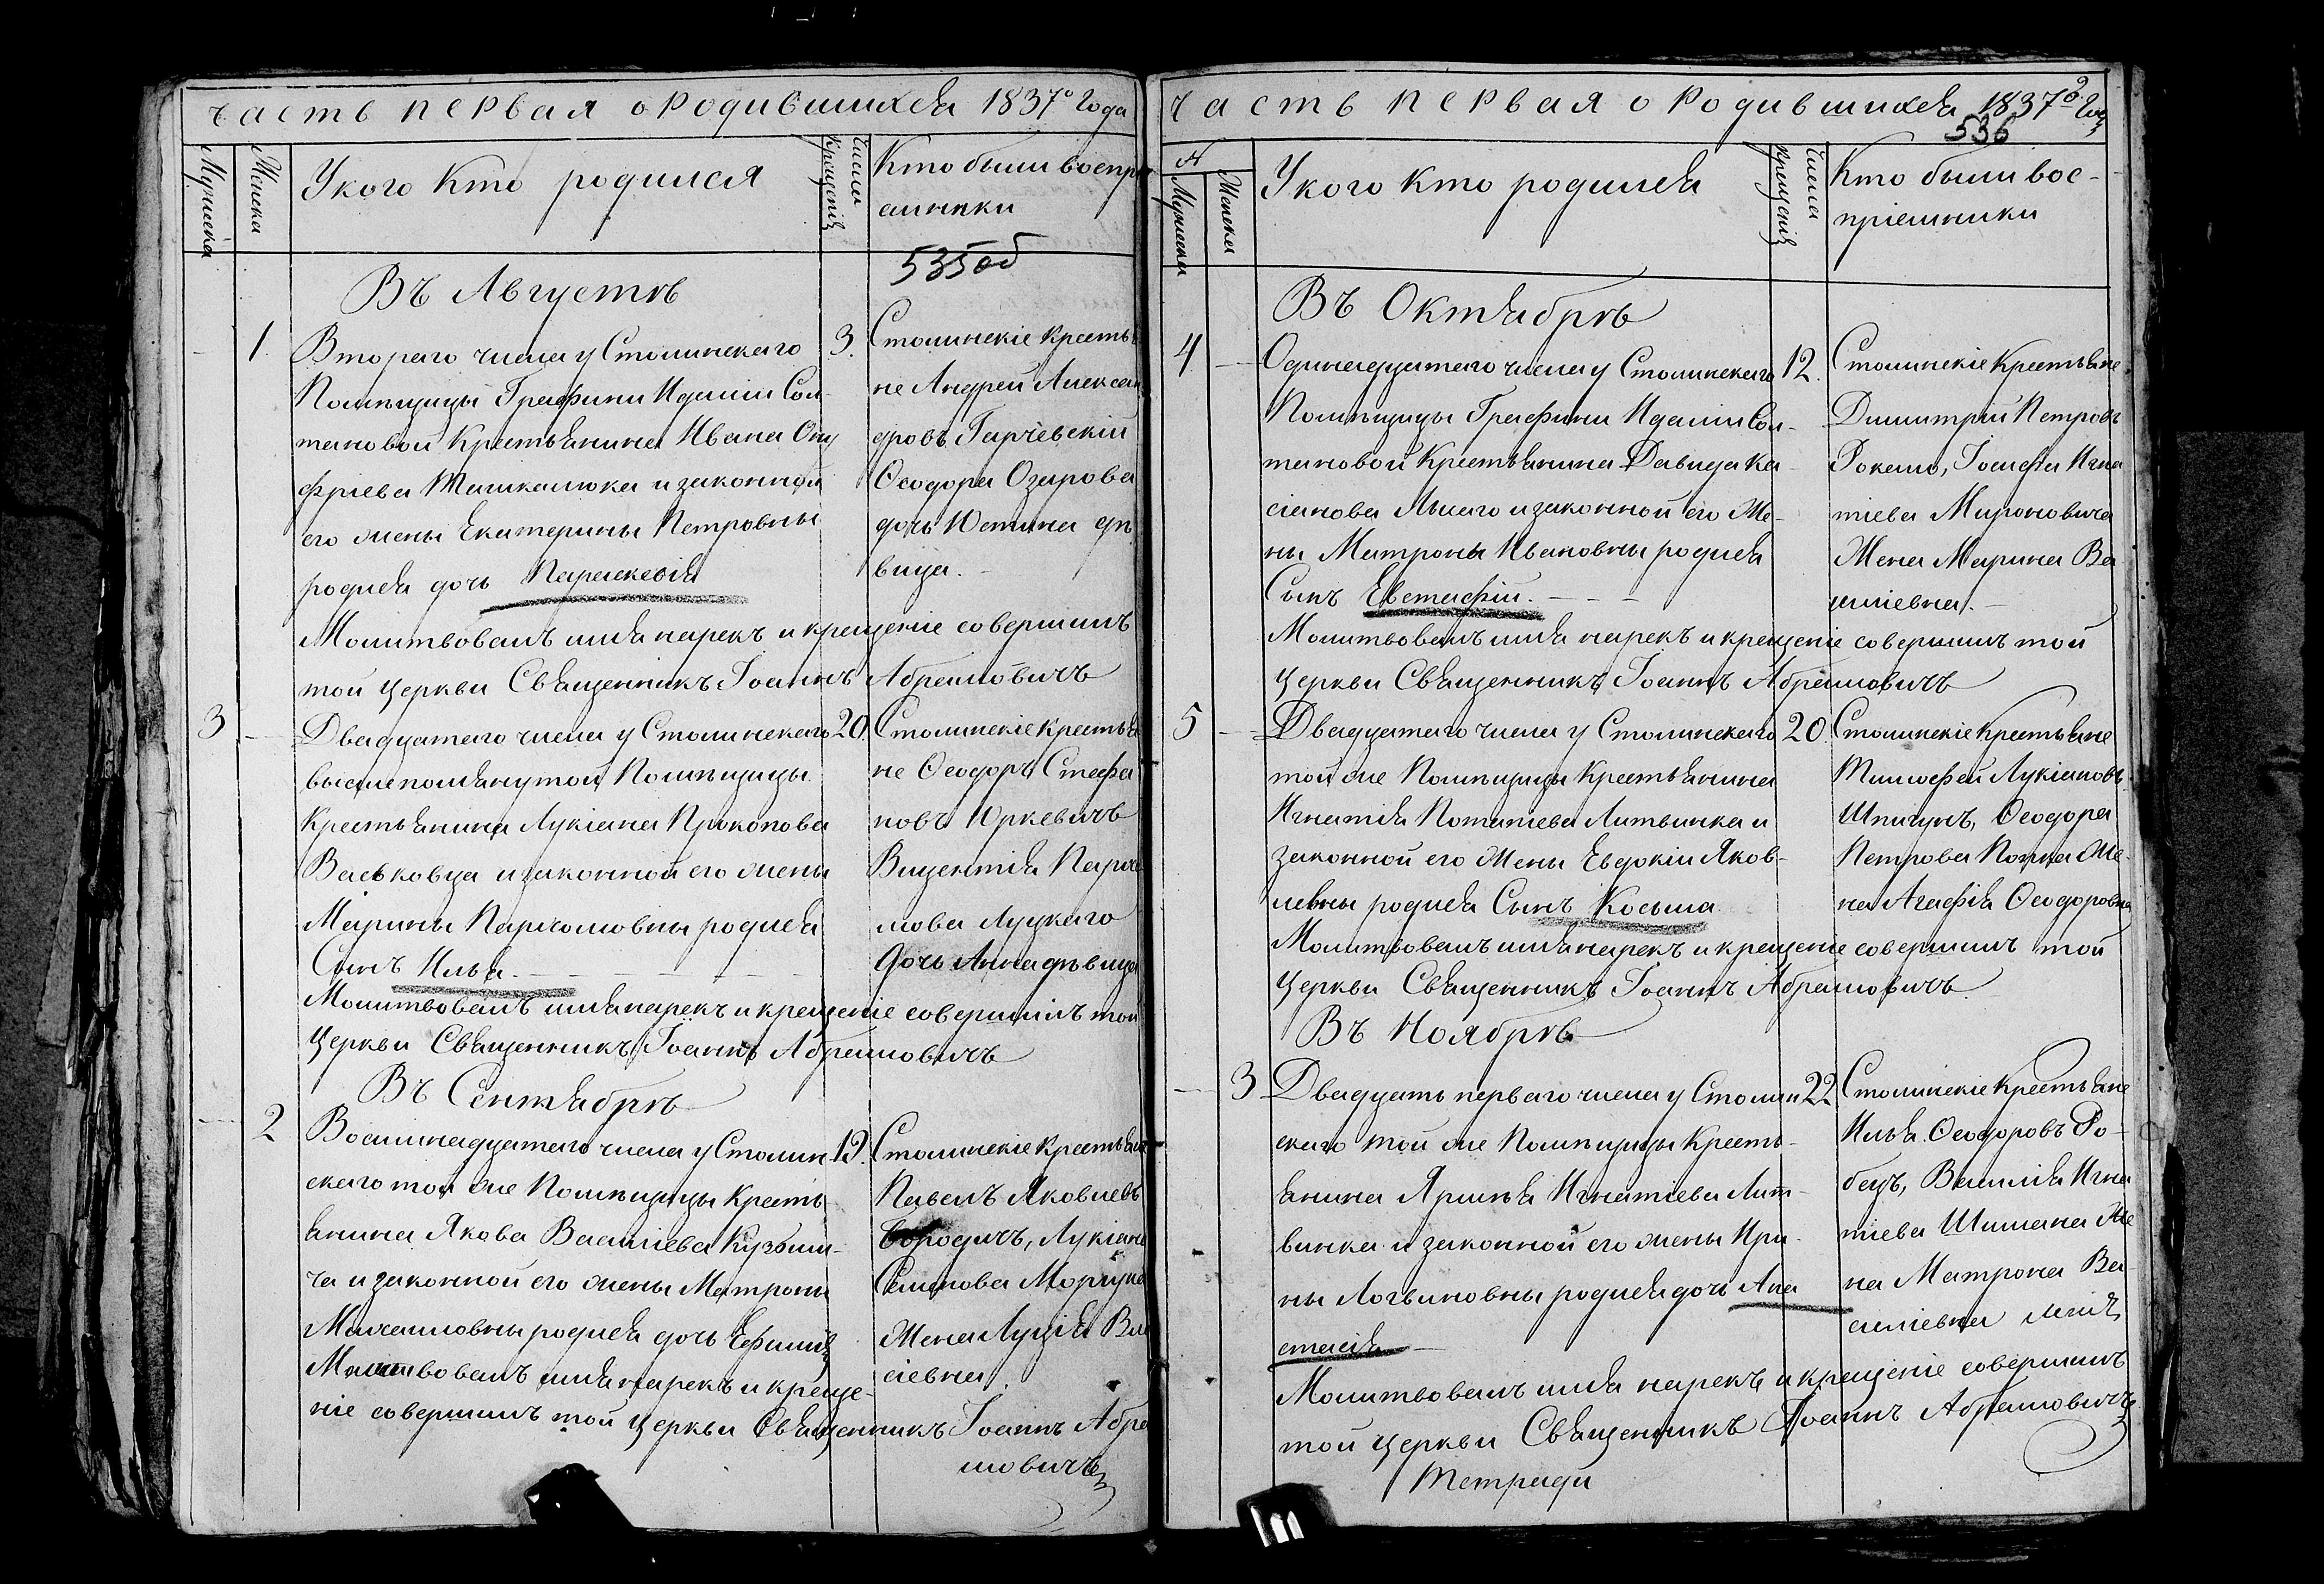 часть первая о родившихся 1837º года
Мужеска
Женска
У кого кто родился
Числа
крещенія
Кто были воспрі
емники
535об
Въ Августѣ
1. Втораго числа у Столинскаго 3.
Помѣщицы Графини Идаліи Сол-
тановой Крестьянина Ивана Ону
фріева и законной
его жены Екатерины Петровны
родися дочь Параскевія
Столинскіе крестья
не Андрей Алексан
дровъ Гарчевскій
Ѳеодора Озарова
дочь Юстина дѣ
вица.
Молитвовалъ имя нарекъ и крещеніе совершилъ
той церкви Священникъ Іоаннъ Абрамовичъ
3 - Двадцатаго числа у Столинскаго 20.
вышепомянутой Помѣщицы
Крестьянина Лукіана Прокопова
Васьковца и законной его жены
Марины Пархомовны родися
Сынъ Илья.
Столинскіе крестья
не Ѳеодоръ Стефа
новъ Юркевичъ
Викентія Пархо
мова Луцкаго
Дочь Анна дѣвица
Молитвовалъ имя нарекъ и крещеніе совершилъ той
церкви Священникъ Іоаннъ Абрамовичъ
Въ Сентябрѣ
- 2 Восьмнадцатаго числа у Столин 19.
скаго той же Помѣщицы Кресть
янина Якова Василіева Кузьми-
ча и законной его жены Матроны
Михаиловны родися дочь Ефимія
Столинскіе Крестьяне
Павелъ Яковлевъ
Бородичъ, Лукіана
Семенова
Жена Луція Ва
сіевна
Молитвовалъ имя нарекъ и креще-
ніе совершилъ той церкви Священникъ Іоаннъ Абра
мовичъ
часть первая о родившихся 1837º Года
536
№
Мужеска
Женска
У кого кто родился
Числа
крещенія
Кто были вос-
пріемники
Въ Октябрѣ
4 - Одинадцатаго числа у Столинскаго 12.
Помѣщицы Графини Идаліи Сол-
тановой Крестьянина Давида Ка-
сіанова Лысаго и законной его Же-
ны Матроны Ивановны родися
Сынъ Евстафій. - - -
Столинскіе Крестьяне
Димитрій Петровъ
Рокало, Іосифа Игна
тіева Мироновича
Жена Марина Ва
силіевна. -
Молитвовалъ имя нарекъ и крещеніе совершилъ той
церкви Священникъ Іоаннъ Абрамовичъ
5 - Двадцатаго числа у Столинскаго 20.
той же Помѣщицы Крестьянина
Игнатія Потапіева Литвинка и
законной его Жены Евдокіи Яков-
левны родися Сынъ Косьма
Столинскіе Крестьяне
Тимофей Лукіановъ
Шпигунъ, Ѳеодора
Петрова Же-
на Агафія Ѳеодоровна
Молитвовалъ имя нарекъ и крещеніе совершилъ той
церкви Священникъ Іоаннъ Абрамовичъ.
Въ Ноябрѣ
- 3 Двадцать перваго числа у Столин 22.
скаго той же Помѣщицы Кресть-
янина Игнатіева Лит-
винка и законной его жены Ири-
ны Логвиновны родися дочь Ана
стасія -
Столинскіе Крестьяне
Илья Ѳеодоровъ Ро-
бецъ, Василія Игна
тіева Шимана Же
на Матрона Ва-
силіевна
Молитвовалъ имя нарекъ и крещеніе совершилъ
той церкви Священникъ Іоаннъ Абрамовичъ
Тетради